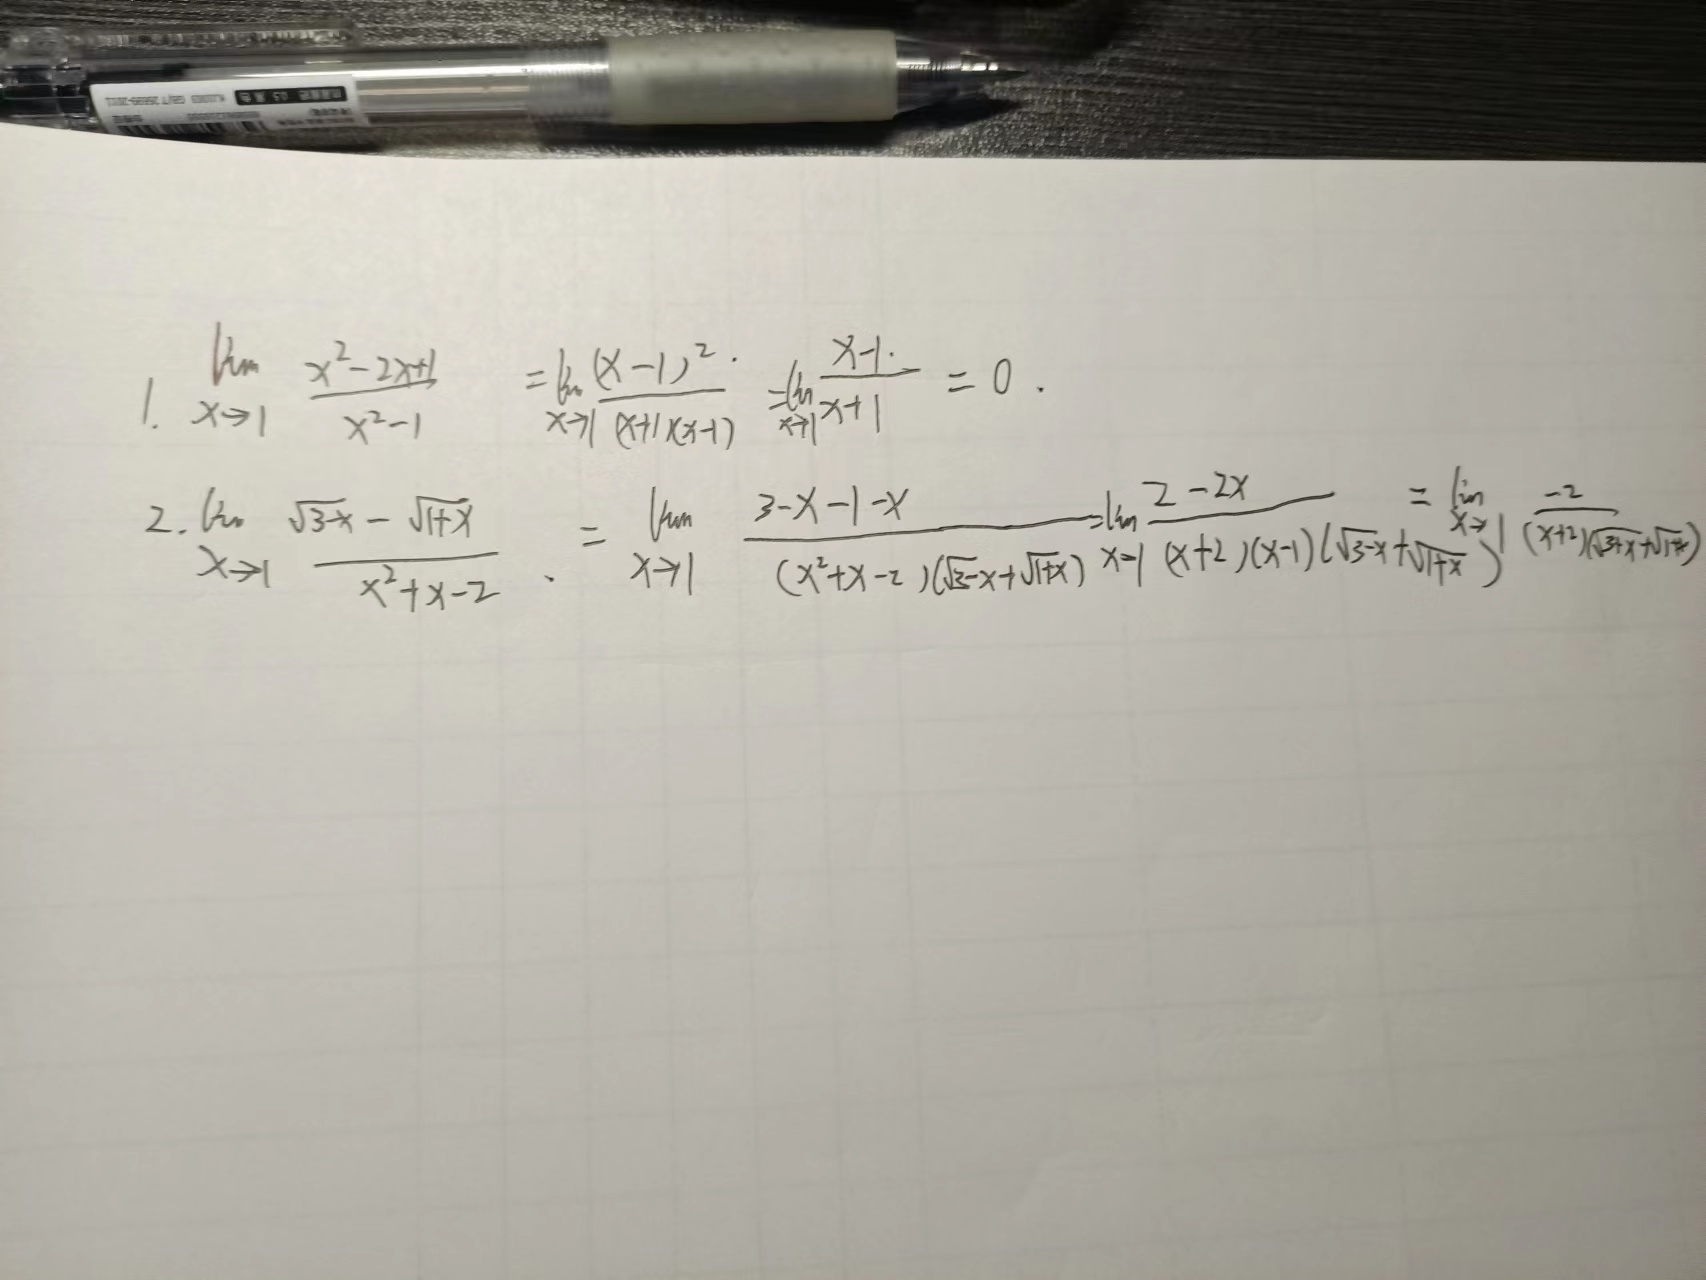 1. lim x→1 (x²-2x+1)/(x²-1) = lim x→1 (x-1)²/((x+1)(x-1)) = lim x→1 (x-1)/(x+1) = 0.
2. lim x→1 (√3-x - √1+x)/(x²+x-2) = lim x→1 (3-x-1-x)/((x²+x-2)(√3-x+√1+x)) = lim x→1 (2-2x)/((x+2)(x-1)(√3-x+√1+x)) = lim x→1 -2/((x+2)(√3+x+√1+x))